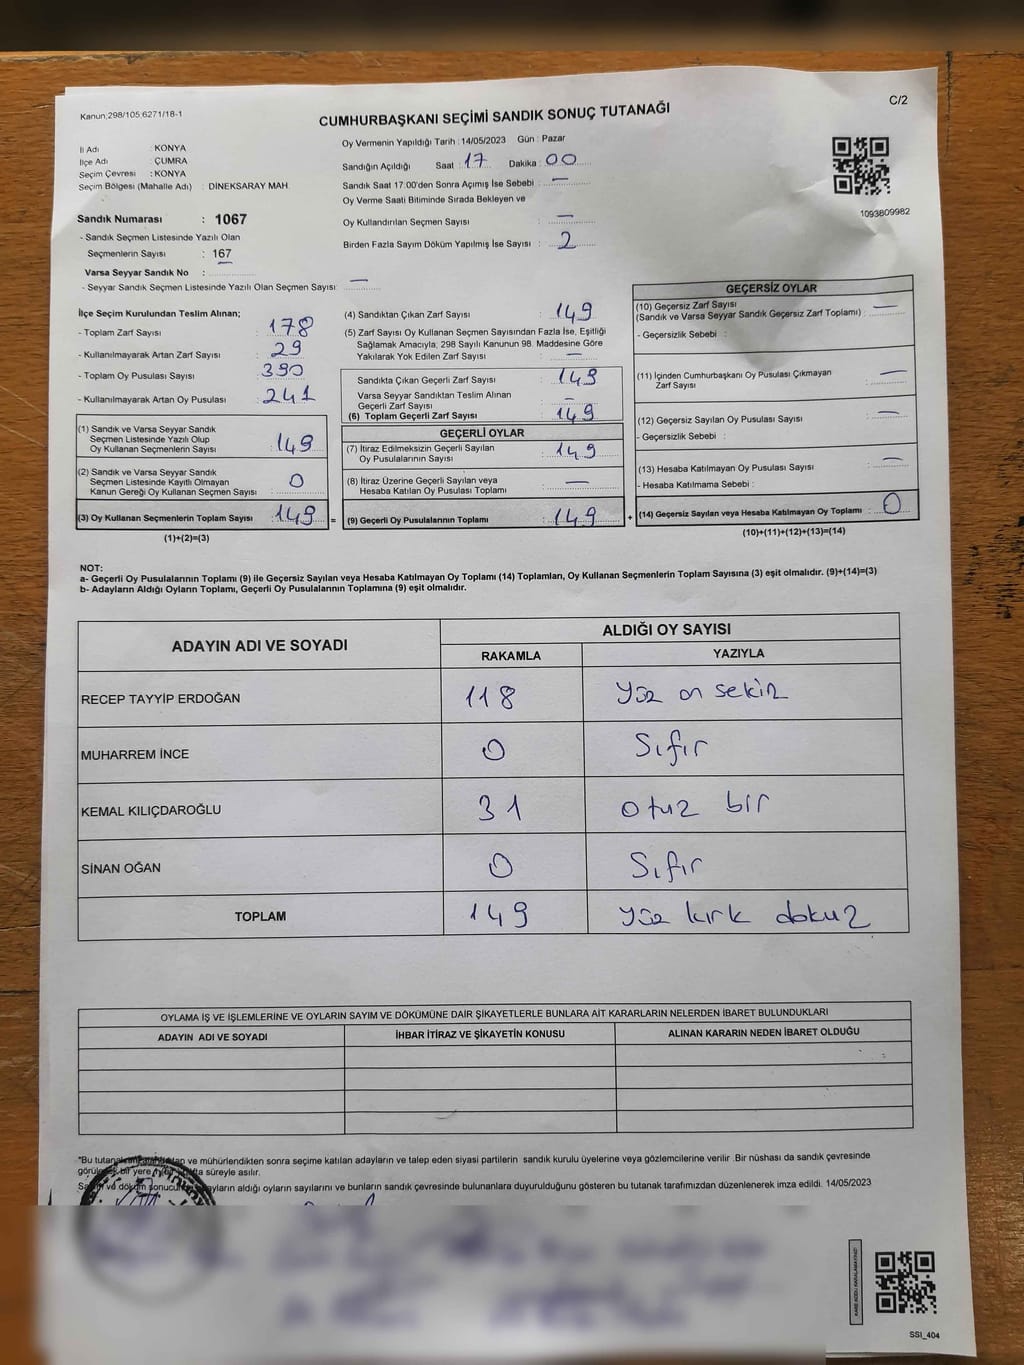 Kanun;298/105;6271/18-1
C/2
CUMHURBAŞKANI SEÇİMİ SANDIK SONUÇ TUTANAĞI
İl Adı : KONYA
İlçe Adı : ÇUMRA
Seçim Çevresi : KONYA
Seçim Bölgesi (Mahalle Adı) : DİNEKSARAY MAH.
Sandık Numarası : 1067
- Sandık Seçmen Listesinde Yazılı Olan
Seçmenlerin Sayısı : 167
Varsa Seyyar Sandık No :
- Seyyar Sandık Seçmen Listesinde Yazılı Olan Seçmen Sayısı : —
Oy Vermenin Yapıldığı Tarih : 14/05/2023 Gün : Pazar
Sandığın Açıldığı Saat : 17 Dakika : 00
Sandık Saat 17:00'den Sonra Açımış İse Sebebi : —
Oy Verme Saati Bitiminde Sırada Bekleyen ve
Oy Kullandırılan Seçmen Sayısı : —
Birden Fazla Sayım Döküm Yapılmış İse Sayısı : 2
1093809982
İlçe Seçim Kurulundan Teslim Alınan;
- Toplam Zarf Sayısı : 178
- Kullanılmayarak Artan Zarf Sayısı : 29
- Toplam Oy Pusulası Sayısı : 390
- Kullanılmayarak Artan Oy Pusulası : 241
(1) Sandık ve Varsa Seyyar Sandık
Seçmen Listesinde Yazılı Olup
Oy Kullanan Seçmenlerin Sayısı : 149
(2) Sandık ve Varsa Seyyar Sandık
Seçmen Listesinde Kayıtlı Olmayan
Kanun Gereği Oy Kullanan Seçmen Sayısı : 0
(3) Oy Kullanan Seçmenlerin Toplam Sayısı : 149 =
(1)+(2)=(3)
(4) Sandıktan Çıkan Zarf Sayısı : 149
(5) Zarf Sayısı Oy Kullanan Seçmen Sayısından Fazla İse, Eşitliği
Sağlamak Amacıyla; 298 Sayılı Kanunun 98. Maddesine Göre
Yakılarak Yok Edilen Zarf Sayısı : —
Sandıkta Çıkan Geçerli Zarf Sayısı : 149
Varsa Seyyar Sandıktan Teslim Alınan
Geçerli Zarf Sayısı : —
(6) Toplam Geçerli Zarf Sayısı : 149
GEÇERLİ OYLAR
(7) İtiraz Edilmeksizin Geçerli Sayılan
Oy Pusulalarının Sayısı : 149
(8) İtiraz Üzerine Geçerli Sayılan veya
Hesaba Katılan Oy Pusulası Toplamı : —
(9) Geçerli Oy Pusulalarının Toplamı : 149 +
GEÇERSİZ OYLAR
(10) Geçersiz Zarf Sayısı
(Sandık ve Varsa Seyyar Sandık Geçersiz Zarf Toplamı) : —
- Geçersizlik Sebebi :
(11) İçinden Cumhurbaşkanı Oy Pusulası Çıkmayan
Zarf Sayısı : —
(12) Geçersiz Sayılan Oy Pusulası Sayısı : —
- Geçersizlik Sebebi :
(13) Hesaba Katılmayan Oy Pusulası Sayısı : —
- Hesaba Katılmama Sebebi :
(14) Geçersiz Sayılan veya Hesaba Katılmayan Oy Toplamı : 0
(10)+(11)+(12)+(13)=(14)
NOT:
a- Geçerli Oy Pusulalarının Toplamı (9) ile Geçersiz Sayılan veya Hesaba Katılmayan Oy Toplamı (14) Toplamları, Oy Kullanan Seçmenlerin Toplam Sayısına (3) eşit olmalıdır. (9)+(14)=(3)
b- Adayların Aldığı Oyların Toplamı, Geçerli Oy Pusulalarının Toplamına (9) eşit olmalıdır.
ADAYIN ADI VE SOYADI
ALDIĞI OY SAYISI
RAKAMLA YAZIYLA
RECEP TAYYİP ERDOĞAN 118 Yüz on sekiz
MUHARREM İNCE 0 Sıfır
KEMAL KILIÇDAROĞLU 31 otuz bir
SİNAN OĞAN 0 Sıfır
TOPLAM 149 Yüz kırk dokuz
OYLAMA İŞ VE İŞLEMLERİNE VE OYLARIN SAYIM VE DÖKÜMÜNE DAİR ŞİKAYETLERLE BUNLARA AİT KARARLARIN NELERDEN İBARET BULUNDUKLARI
ADAYIN ADI VE SOYADI İHBAR İTİRAZ VE ŞİKAYETİN KONUSU ALINAN KARARIN NEDEN İBARET OLDUĞU
*Bu ve mühürlendikten sonra seçime katılan adayların ve talep eden siyasi partilerin sandık kurulu üyelerine veya gözlemcilerine verilir .Bir nüshası da sandık çevresinde
bir yere süreyle asılır.
ve döküm adayların aldığı oyların sayılarını ve bunların sandık çevresinde bulunanlara duyurulduğunu gösteren bu tutanak tarafımızdan düzenlenerek imza edildi. 14/05/2023
SSI_404